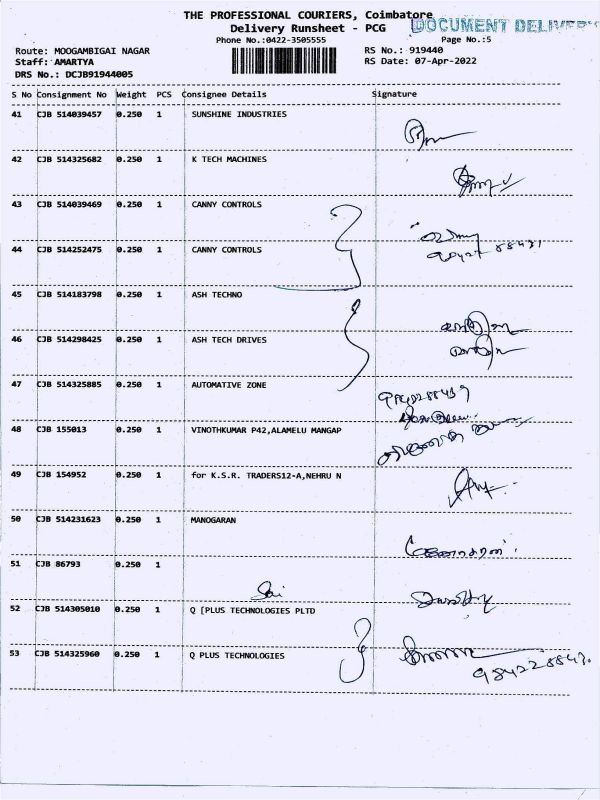 THE PROFESSIONAL COURIERS, Coimbatore
DOCUMENT DELIVERY
Delivery Runsheet - PCG
Phone No.:0422-3505555
Page No.:5
Route: MOOGAMBIGAI NAGAR
RS No.: 919440
Staff: AMARTYA
RS Date: 07-Apr-2022
DRS No.: DCJB91944005
S No Consignment No Weight PCS Consignee Details Signature
41 CJB 514039457 0.250 1 SUNSHINE INDUSTRIES
42 CJB 514325682 0.250 1 K TECH MACHINES
43 CJB 514039469 0.250 1 CANNY CONTROLS
44 CJB 514252475 0.250 1 CANNY CONTROLS
45 CJB 514183798 0.250 1 ASH TECHNO
46 CJB 514298425 0.250 1 ASH TECH DRIVES
47 CJB 514325885 0.250 1 AUTOMATIVE ZONE
48 CJB 155013 0.250 1 VINOTHKUMAR P42,ALAMELU MANGAP
49 CJB 154952 0.250 1 for K.S.R. TRADERS12-A,NEHRU N
50 CJB 514231623 0.250 1 MANOGARAN
51 CJB 86793 0.250 1
Sai
52 CJB 514305010 0.250 1 Q [PLUS TECHNOLOGIES PLTD
53 CJB 514325960 0.250 1 Q PLUS TECHNOLOGIES